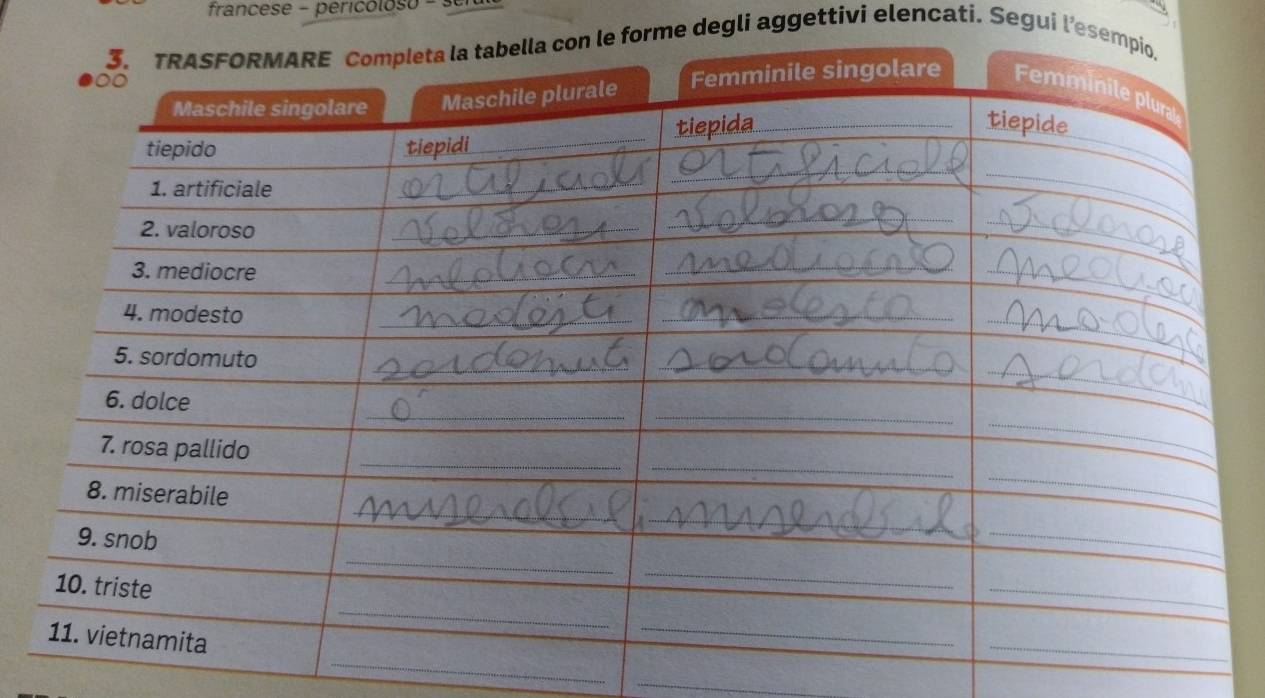 francese - pericoloso -
3. TRASFORMARE Completa la tabella con le forme degli aggettivi elencati. Segui l'esempio.
Maschile singolare Maschile plurale Femminile singolare Femminile plurale
tiepido tiepidi tiepida tiepide
1. artificiale artificiali artificiale
2. valoroso valorosi valorosa valorose
3. mediocre mediocri
4. modesto modesti modesta
5. sordomuto sordomuti sordomuta
6. dolce
7. rosa pallido
8. miserabile miserabili miserabile
9. snob
10. triste
11. vietnamita